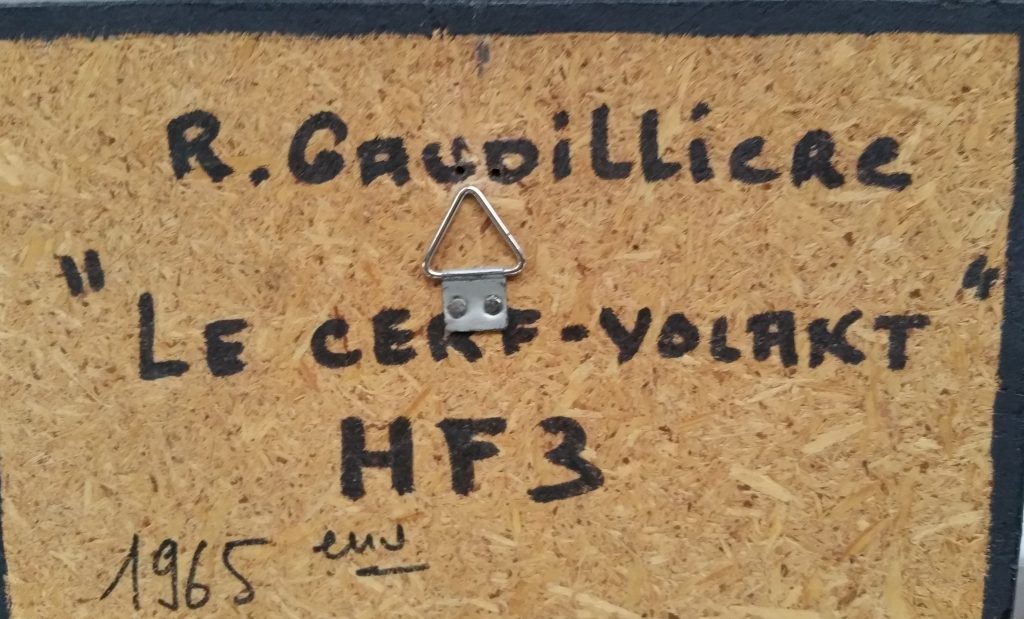 R. GAUDiLLiERE
"LE CERF-VOLANT"
HF3
1965 env